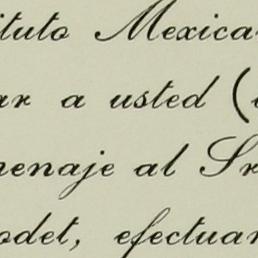 ituto Mexica
ar a usted (
menaje al Sr
odet, efectuar